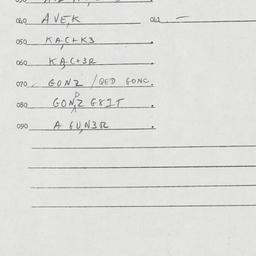 040 AVE,K 041 —
050 KA,C+K3 .
060 KA,C+3R .
070 GONZ / QED GONC.
080 GONZ EXIT .
090 A GU,N3R .